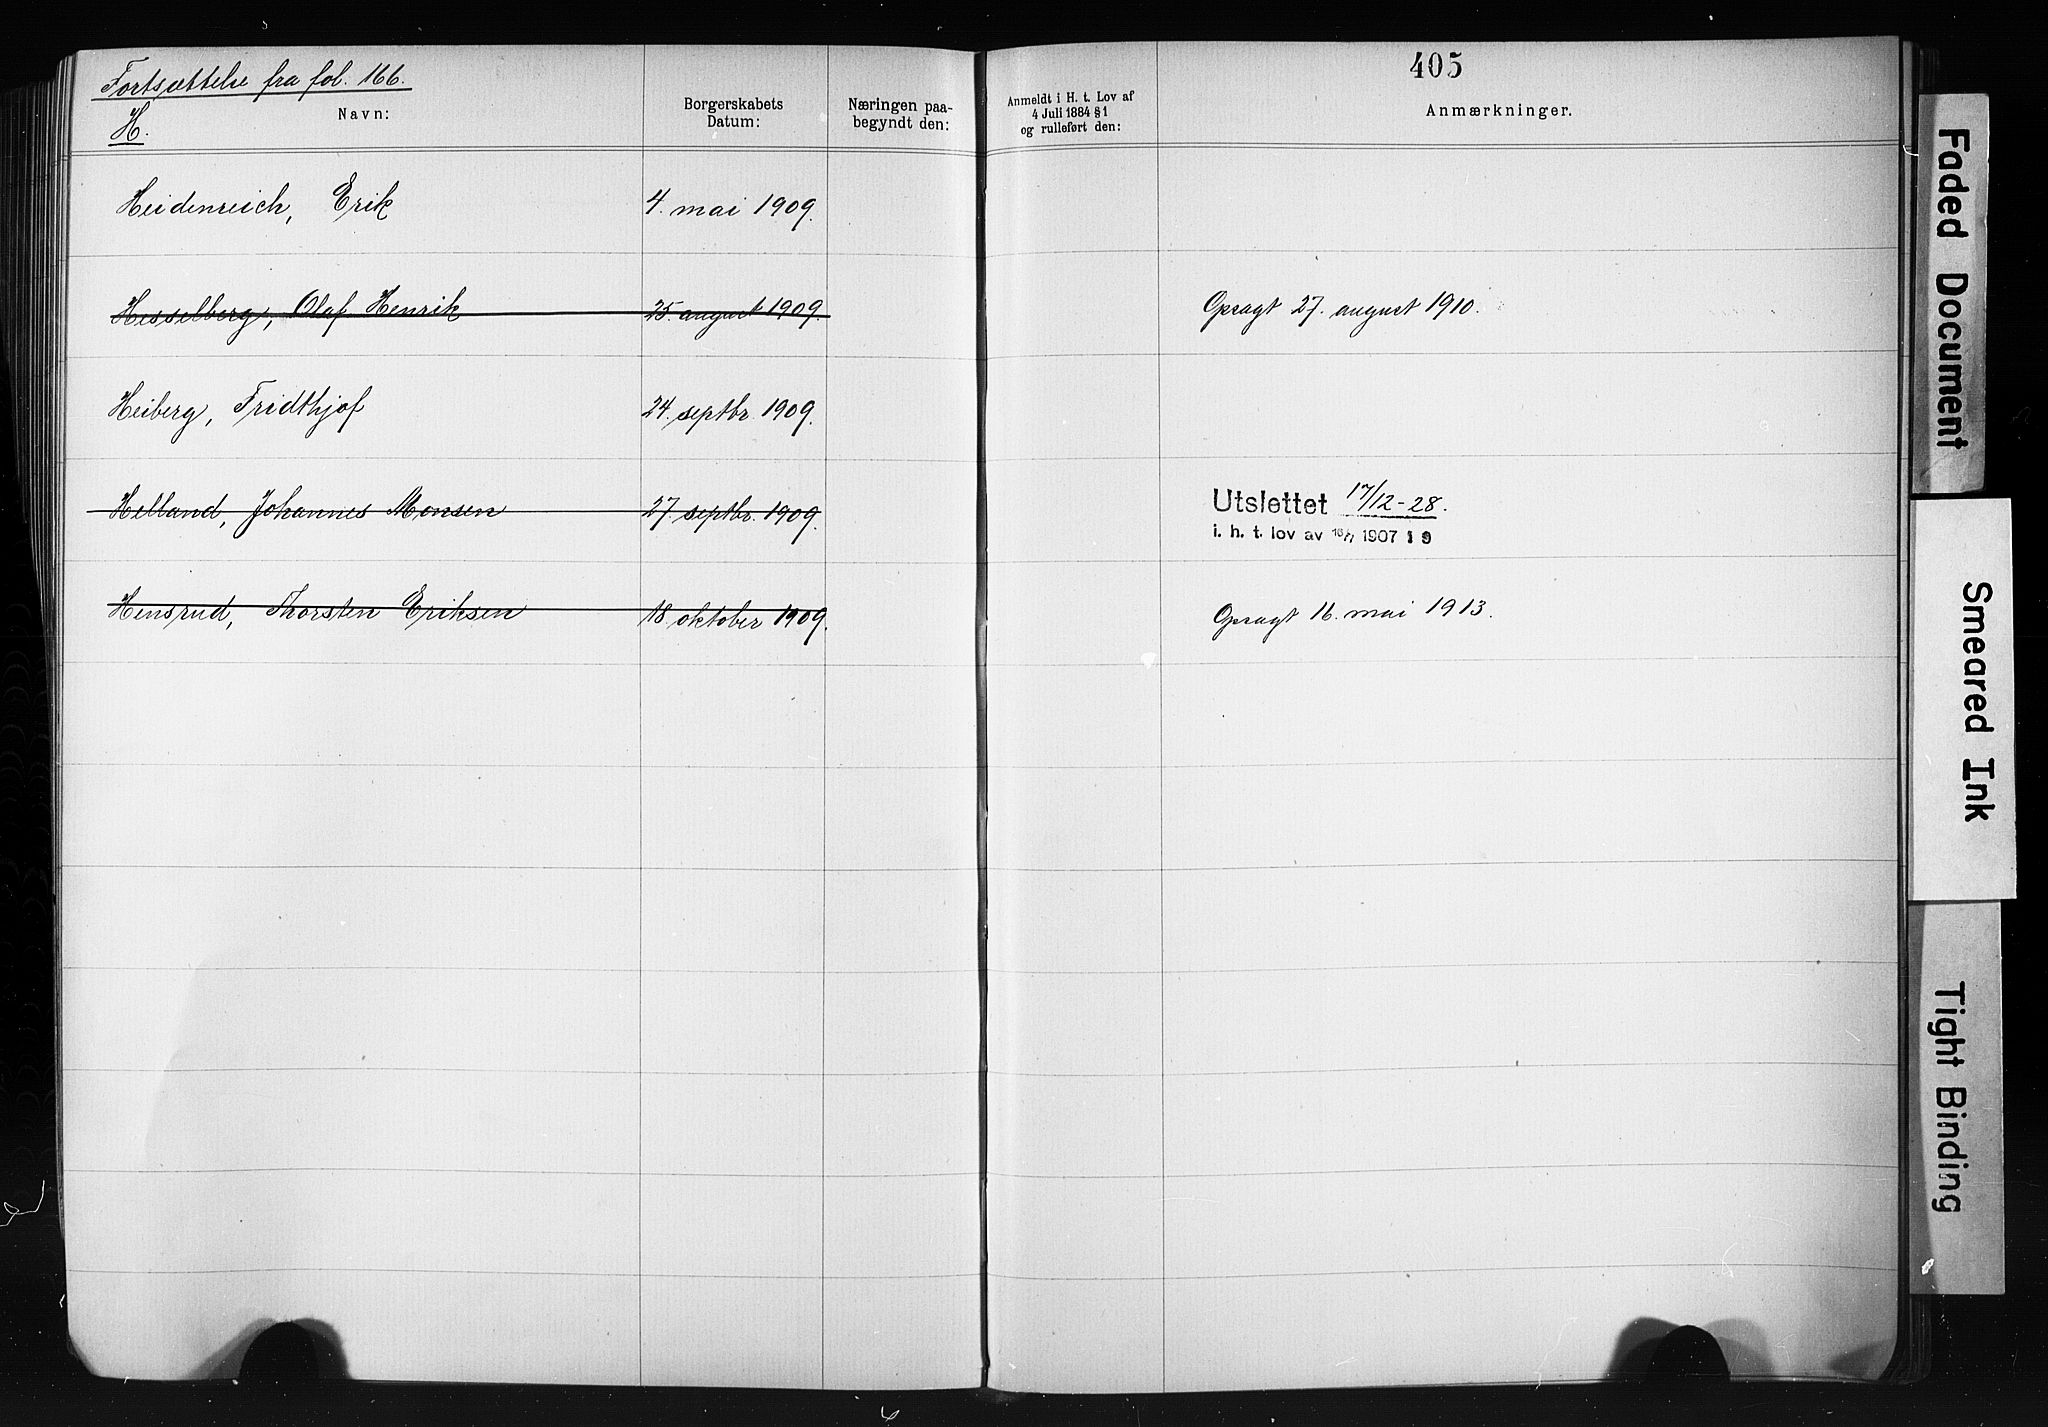 405
Fortsættelse fra fol. 166.
H.
Navn:
Borgerskabets
Datum:
Næringen paa-
begyndt den:
Anmeldt i H. t. Lov af
4 Juli 1884 § 1
og rulleført den:
Anmærkninger.
Heidenreich, Erik 4. mai 1909.
Hesselberg, Olaf Henrik 25. august 1909. Opsagt 27. august 1910.
Heiberg, Fridthjof 24. septbr. 1909.
Helland, Johannes Monsen 27. septbr. 1909. Utslettet 17/12-28.
i. h. t. lov av 16/7 1907 § 9
Hensrud, Thorsten Eriksen 18 oktober 1909. Opsagt 16. mai 1913.
Faded Document
Smeared Ink
Tight Binding